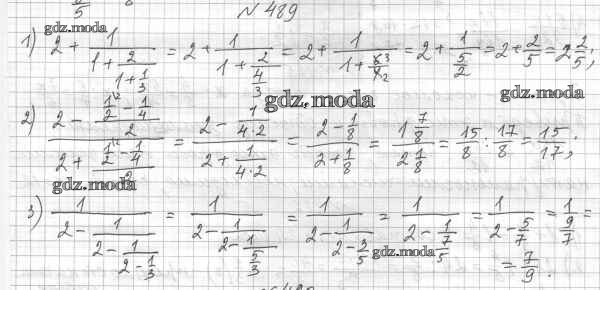 5 8
№ 489
gdz.moda
1) 2 + 1/(1 + 2/(1 + 1/3)) = 2 + 1/(1 + 2/(4/3)) = 2 + 1/(1 + 6³/4₂) = 2 + 1/(5/2) = 2 + 2/5 = 2 2/5;
gdz.moda gdz.moda
2) (2 - (1/2 - 1/4)/2)/(2 + (1/2 - 1/4)/2) = (2 - 1/(4·2))/(2 + 1/(4·2)) = (2 - 1/8)/(2 + 1/8) = (1 7/8)/(2 1/8) = 15/8 : 17/8 = 15/17;
gdz.moda
3) 1/(2 - 1/(2 - 1/(2 - 1/3))) = 1/(2 - 1/(2 - 1/(5/3))) = 1/(2 - 1/(2 - 3/5)) = 1/(2 - 1/(7/5)) = 1/(2 - 5/7) = 1/(9/7) =
gdz.moda
= 7/9.